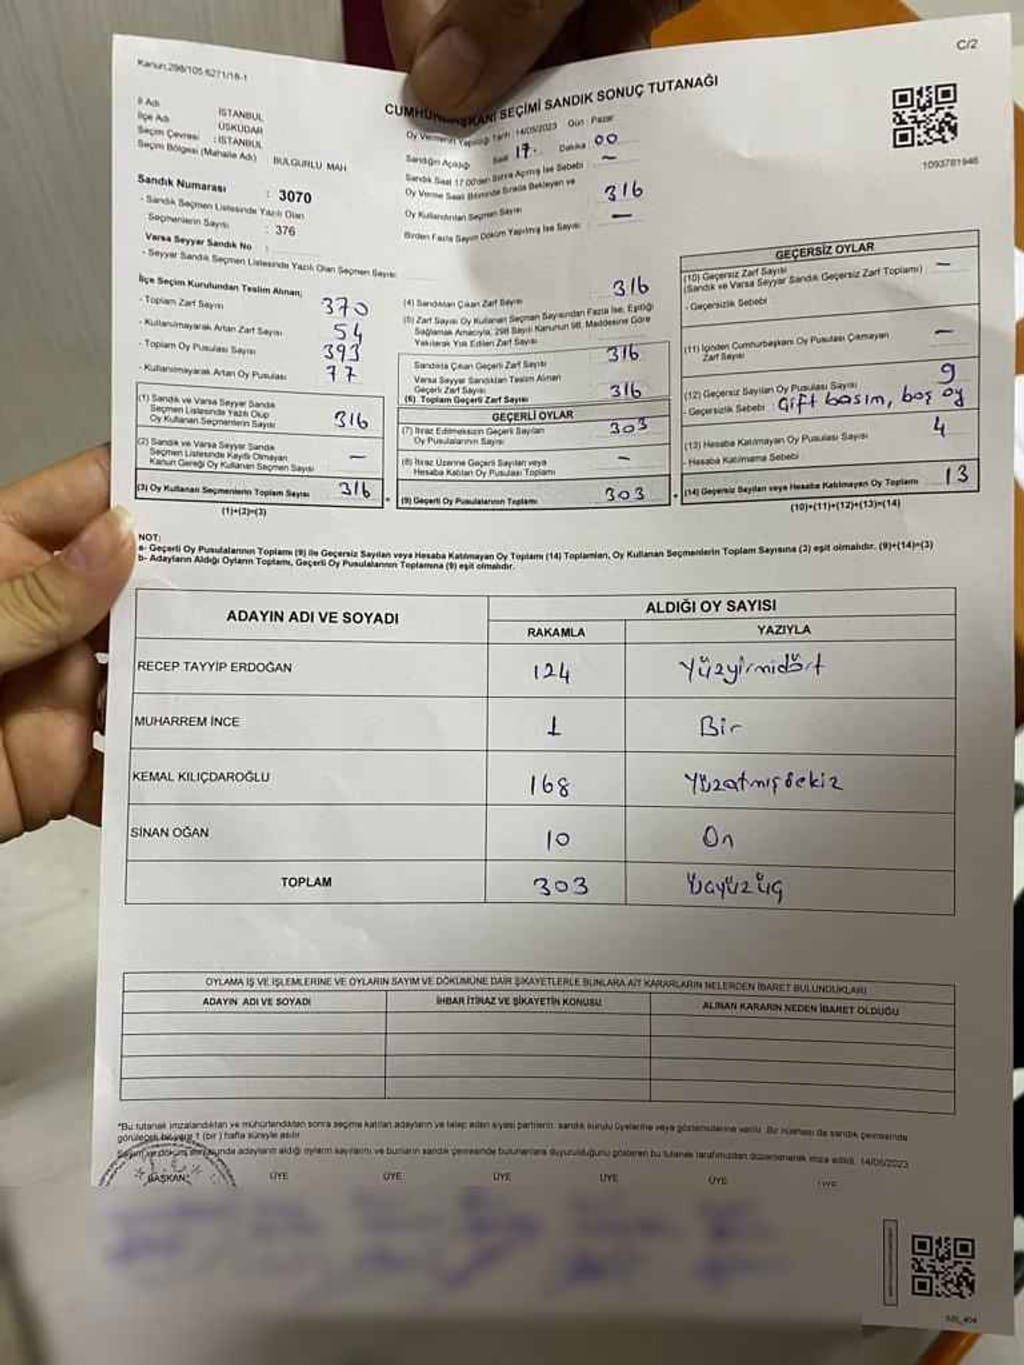 C/2
Kanun:298/105 6271/18-1
CUMHUR KANI SEÇİMİ SANDIK SONUÇ TUTANAĞI
1093781946
İl Adı İSTANBUL
İlçe Adı ÜSKÜDAR
Seçim Çevresi : İSTANBUL
Seçim Bölgesi (Mahalle Adı) BULGURLU MAH
Sandık Numarası : 3070
- Sandık Seçmen Listesinde Yazılı Olan
Seçmenlerin Sayısı : 376
Varsa Seyyar Sandık No :
- Seyyar Sandık Seçmen Listesinde Yazılı Olan Seçmen Sayısı
Oy Vermenin Yapıldığı Tarih : 14/05/2023 Gün : Pazar
Sandığın Açıldığı Saat 17. Dakika 00
Sandık Saat 17.00'den Sonra Açılmış İse Sebebi –
Oy Verme Saati Bitiminde Sırada Bekleyen ve
Oy Kullandırılan Seçmen Sayısı 316
Birden Fazla Sayım Döküm Yapılmış İse Sayısı –
İlçe Seçim Kurulundan Teslim Alınan;
- Toplam Zarf Sayısı 370
- Kullanılmayarak Artan Zarf Sayısı 54
- Toplam Oy Pusulası Sayısı 393
- Kullanılmayarak Artan Oy Pusulası 77
(1) Sandık ve Varsa Seyyar Sandık
Seçmen Listesinde Yazılı Olup
Oy Kullanan Seçmenlerin Sayısı 316
(2) Sandık ve Varsa Seyyar Sandık
Seçmen Listesinde Kayıtlı Olmayan
Kanun Gereği Oy Kullanan Seçmen Sayısı –
(3) Oy Kullanan Seçmenlerin Toplam Sayısı 316
(1)+(2)=(3)
(4) Sandıktan Çıkan Zarf Sayısı 316
(5) Zarf Sayısı Oy Kullanan Seçmen Sayısından Fazla İse, Eşitliği
Sağlamak Amacıyla, 298 Sayılı Kanunun 98. Maddesine Göre
Yakılarak Yok Edilen Zarf Sayısı
Sandıkta Çıkan Geçerli Zarf Sayısı 316
Varsa Seyyar Sandıktan Teslim Alınan
Geçerli Zarf Sayısı
(6) Toplam Geçerli Zarf Sayısı 316
GEÇERLİ OYLAR
(7) İtiraz Edilmeksizin Geçerli Sayılan
Oy Pusulalarının Sayısı 303
(8) İtiraz Üzerine Geçerli Sayılan veya
Hesaba Katılan Oy Pusulası Toplamı –
(9) Geçerli Oy Pusulalarının Toplamı 303
GEÇERSİZ OYLAR
(10) Geçersiz Zarf Sayısı –
(Sandık ve Varsa Seyyar Sandık Geçersiz Zarf Toplamı)
- Geçersizlik Sebebi
(11) İçinden Cumhurbaşkanı Oy Pusulası Çıkmayan
Zarf Sayısı –
(12) Geçersiz Sayılan Oy Pusulası Sayısı 9
- Geçersizlik Sebebi : Çift basım, boş oy
(13) Hesaba Katılmayan Oy Pusulası Sayısı 4
- Hesaba Katılmama Sebebi
(14) Geçersiz Sayılan veya Hesaba Katılmayan Oy Toplamı 13
(10)+(11)+(12)+(13)=(14)
NOT:
a- Geçerli Oy Pusulalarının Toplamı (9) ile Geçersiz Sayılan veya Hesaba Katılmayan Oy Toplamı (14) Toplamları, Oy Kullanan Seçmenlerin Toplam Sayısına (3) eşit olmalıdır. (9)+(14)=(3)
b- Adayların Aldığı Oyların Toplamı, Geçerli Oy Pusulalarının Toplamına (9) eşit olmalıdır.
ADAYIN ADI VE SOYADI ALDIĞI OY SAYISI
RAKAMLA YAZIYLA
RECEP TAYYİP ERDOĞAN 124 Yüzyirmidört
MUHARREM İNCE 1 Bir
KEMAL KILIÇDAROĞLU 168 Yüzatmışsekiz
SİNAN OĞAN 10 On
TOPLAM 303 Üçyüzüç
OYLAMA İŞ VE İŞLEMLERİNE VE OYLARIN SAYIM VE DÖKÜMÜNE DAİR ŞİKAYETLERLE BUNLARA AİT KARARLARIN NELERDEN İBARET BULUNDUKLARI
ADAYIN ADI VE SOYADI İHBAR İTİRAZ VE ŞİKAYETİN KONUSU ALINAN KARARIN NEDEN İBARET OLDUĞU
*Bu tutanak imzalandıktan ve mühürlendikten sonra seçime katılan adayların ve talep eden siyasi partilerin, sandık kurulu üyelerine veya gözlemcilerine verilir. Bir nüshası da sandık çevresinde
görülecek bir yere 1 (bir) hafta süreyle asılır.
Sayım ve döküm sonunda adayların aldığı oyların sayılarını ve bunların sandık çevresinde bulunanlara duyurulduğunu gösteren bu tutanak tarafımızdan düzenlenerek imza edildi. 14/05/2023
BAŞKAN ÜYE ÜYE ÜYE ÜYE ÜYE ÜYE